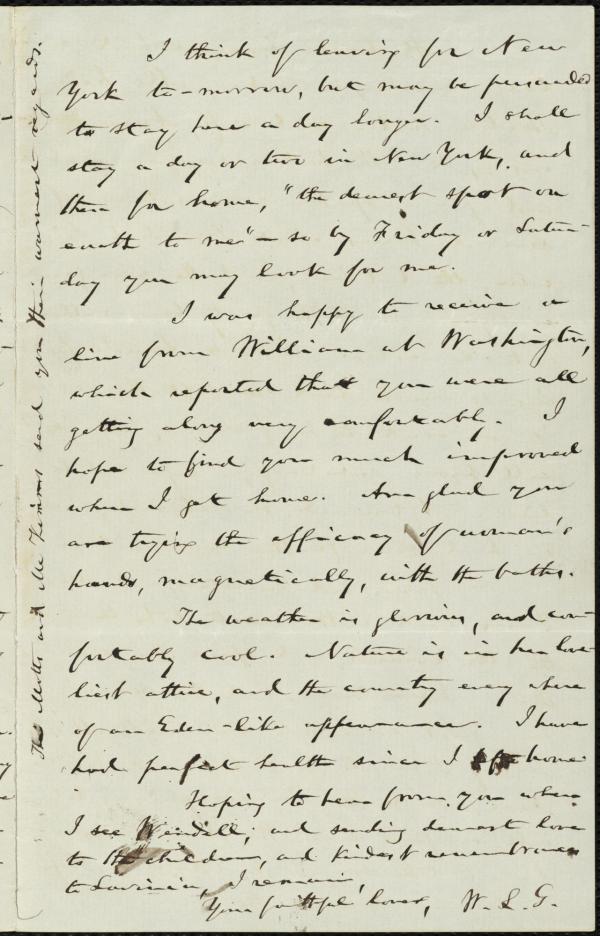 I think of leaving for New
York to-morrow, but may be persuaded
to stay here a day longer. I shall
stay a day or two in New York, and
then for home, "the dearest spot on
earth to me" — so by Friday or Satur-
day you may look for me.
I was happy to receive a
line from William at Washington,
which reported that you were all
getting along very comfortably. I
hope to find you much improved
when I get home. Am glad you
are trying the efficacy of woman's
hands, magnetically, with the baths.
The weather is glorious, and com-
fortably cool. Nature is in her love-
liest attire, and the country every where
of an Eden-like appearance. I have
had perfect health since I left home.
Hoping to hear from you when
I see Wendell, and sending dearest love
to the children, and kindest remembrances
to Lavinia, I remain,
Your faithful lover, W. L. G.
The Motts and McKims send you their warmest regards.